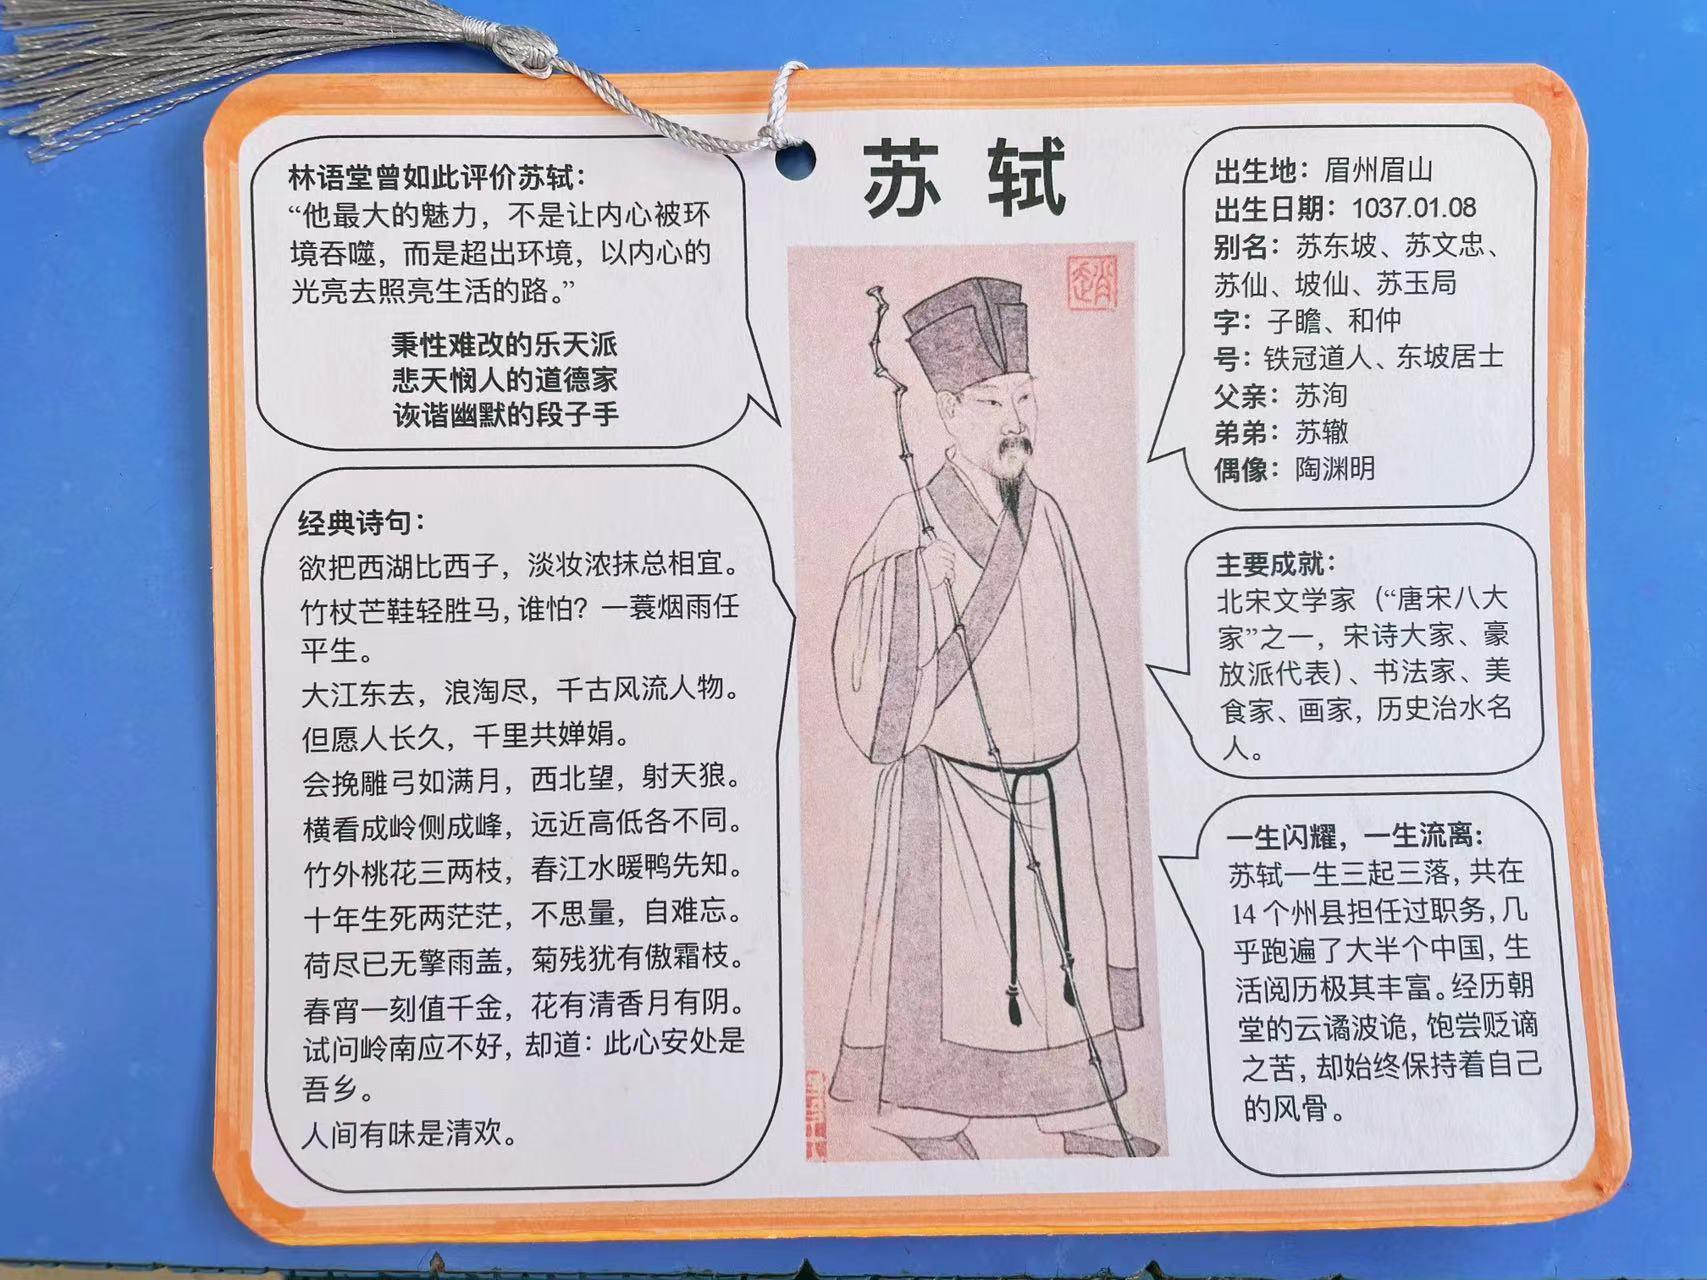 苏 轼
林语堂曾如此评价苏轼：
“他最大的魅力，不是让内心被环
境吞噬，而是超出环境，以内心的
光亮去照亮生活的路。”
秉性难改的乐天派
悲天悯人的道德家
诙谐幽默的段子手
经典诗句：
欲把西湖比西子，淡妆浓抹总相宜。
竹杖芒鞋轻胜马，谁怕？一蓑烟雨任
平生。
大江东去，浪淘尽，千古风流人物。
但愿人长久，千里共婵娟。
会挽雕弓如满月，西北望，射天狼。
横看成岭侧成峰，远近高低各不同。
竹外桃花三两枝，春江水暖鸭先知。
十年生死两茫茫，不思量，自难忘。
荷尽已无擎雨盖，菊残犹有傲霜枝。
春宵一刻值千金，花有清香月有阴。
试问岭南应不好，却道：此心安处是
吾乡。
人间有味是清欢。
出生地：眉州眉山
出生日期：1037.01.08
别名：苏东坡、苏文忠、
苏仙、坡仙、苏玉局
字：子瞻、和仲
号：铁冠道人、东坡居士
父亲：苏洵
弟弟：苏辙
偶像：陶渊明
主要成就：
北宋文学家（“唐宋八大
家”之一，宋诗大家、豪
放派代表）、书法家、美
食家、画家，历史治水名
人。
一生闪耀，一生流离：
苏轼一生三起三落，共在
14 个州县担任过职务，几
乎跑遍了大半个中国，生
活阅历极其丰富。经历朝
堂的云谲波诡，饱尝贬谪
之苦，却始终保持着自己
的风骨。